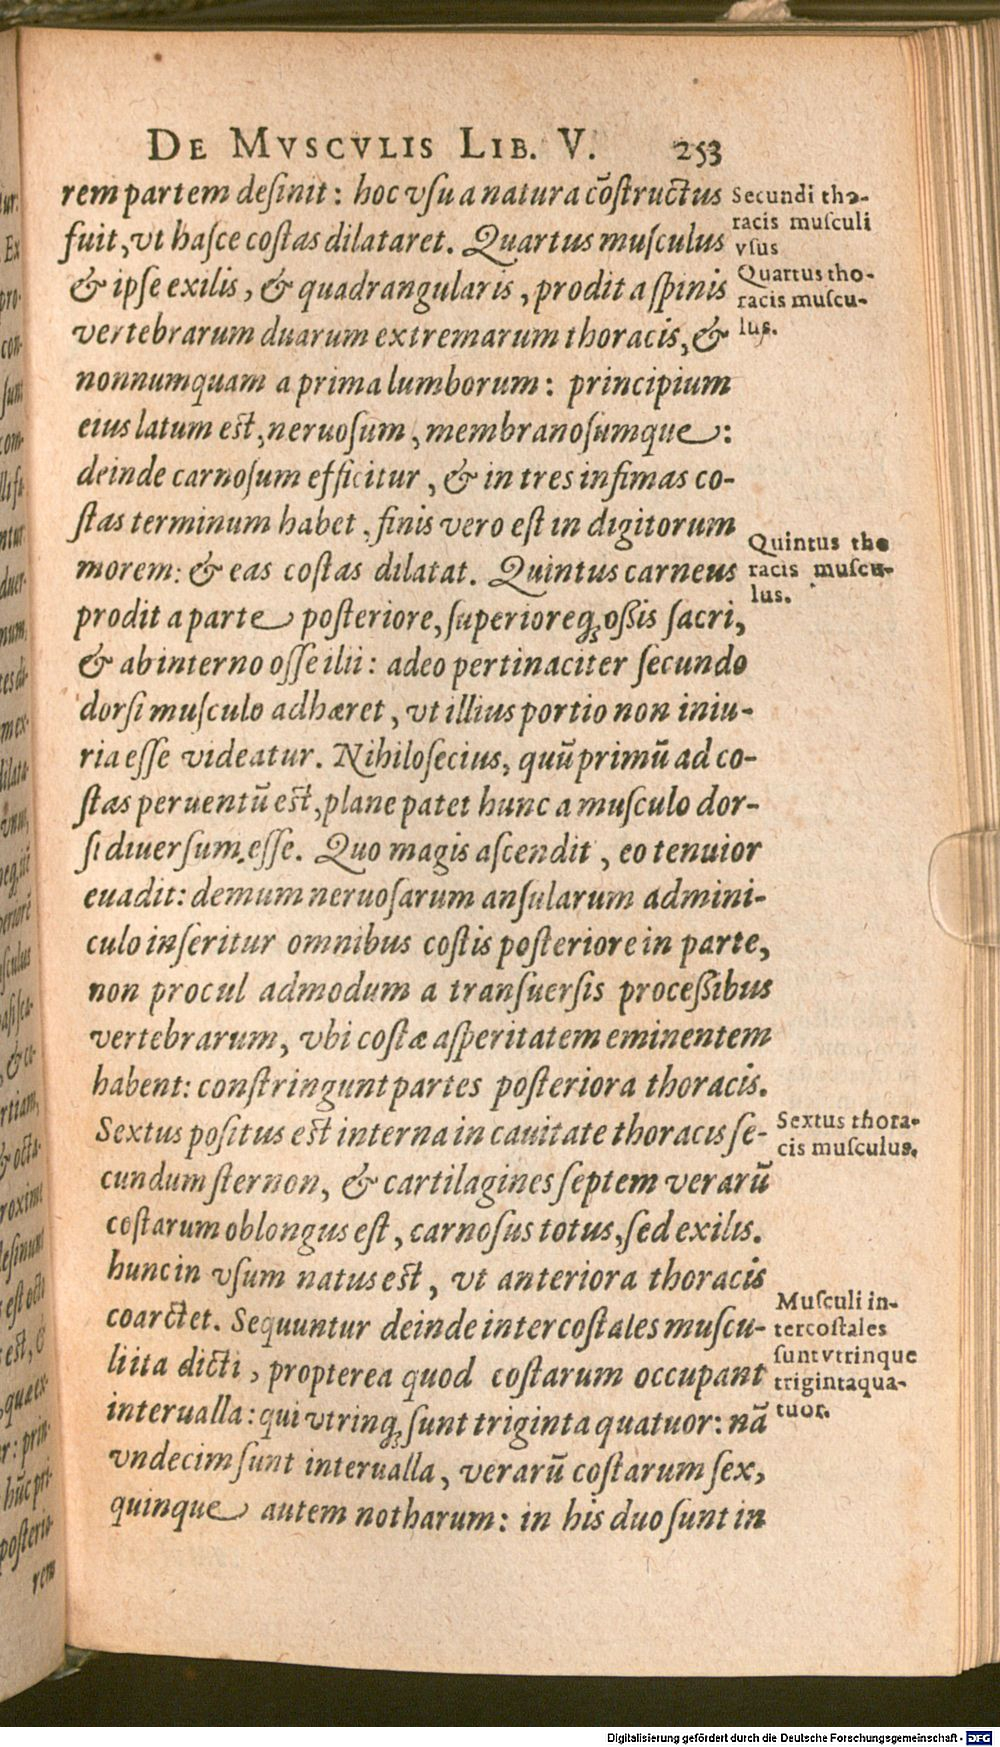 DE MVSCVLIS LIB. V. 253
rem partem desinit: hoc vsu a natura cõstructus
fuit, vt hasce costas dilataret. Quartus musculus
& ipse exilis, & quadrangularis, prodit a spinis
vertebrarum duarum extremarum thoracis, &
nonnumquam a prima lumborum: principium
eius latum est, neruosum, membranosumque:
deinde carnosum efficitur, & in tres infimas co-
stas terminum habet, finis vero est in digitorum
morem: & eas costas dilatat. Quintus carneus
prodit a parte posteriore, superioreq; ossis sacri,
& ab interno osse ilii: adeo pertinaciter secundo
dorsi musculo adhæret, vt illius portio non iniu-
ria esse videatur. Nihilosecius, quũ primũ ad co-
stas peruentũ est, plane patet hunc a musculo dor-
si diuersum esse. Quo magis ascendit, eo tenuior
euadit: demum neruosarum ansularum admini-
culo inseritur omnibus costis posteriore in parte,
non procul admodum a transuersis processibus
vertebrarum, vbi costæ asperitatem eminentem
habent: constringunt partes posteriora thoracis.
Sextus positus est interna in cauitate thoracis se-
cundum sternon, & cartilagines septem verarũ
costarum oblongus est, carnosus totus, sed exilis.
hunc in vsum natus est, vt anteriora thoracis
coarctet. Sequuntur deinde intercostales muscu-
li ita dicti, propterea quod costarum occupant
interualla: qui vtrinq; sunt triginta quatuor: nã
vndecim sunt interualla, verarũ costarum sex,
quinque autem notharum: in his duo sunt in
Secundi tho-
racis musculi
vsus
Quartus tho-
racis muscu-
lus.
Quintus tho
racis muscu-
lus.
Sextus thora-
cis musculus.
Musculi in-
tercostales
sunt vtrinque
triginta qua-
tuor.
Digitalisierung gefördert durch die Deutsche Forschungsgemeinschaft - DFG